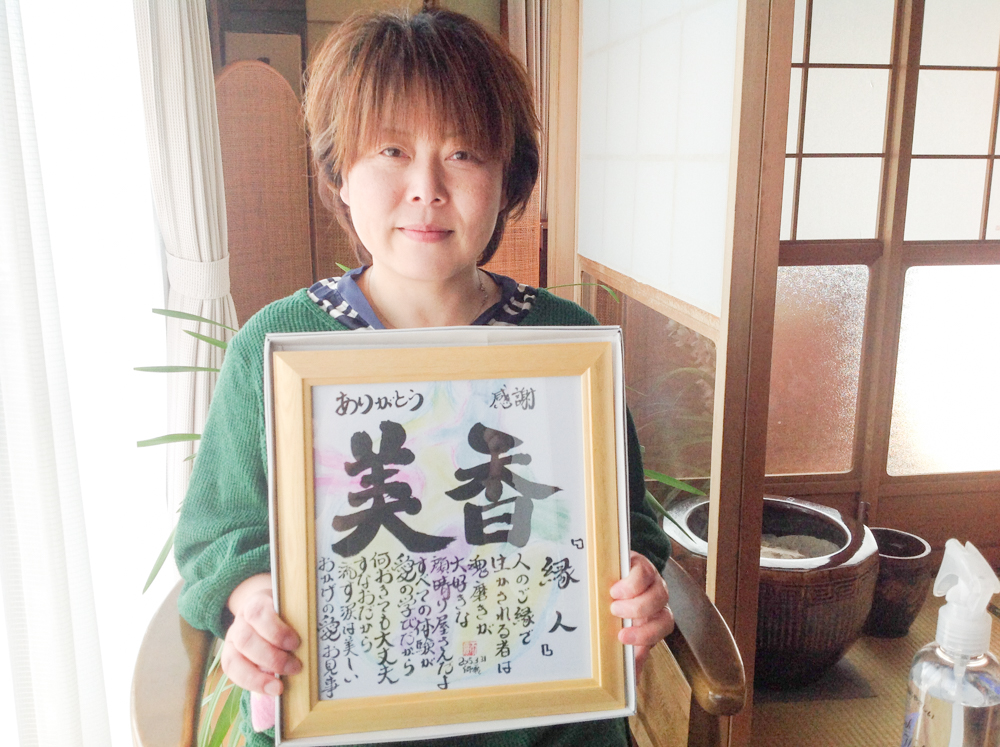 ありがとう 感謝
美香
『縁人』
人のご縁で
生かされる者は
魂磨きが
大好きな
顔晴り屋さんだよ
すべての体験が
愛の学びだから
何おきても大丈夫
すなおだから
流す涙は美しい
おかげの愛お見事